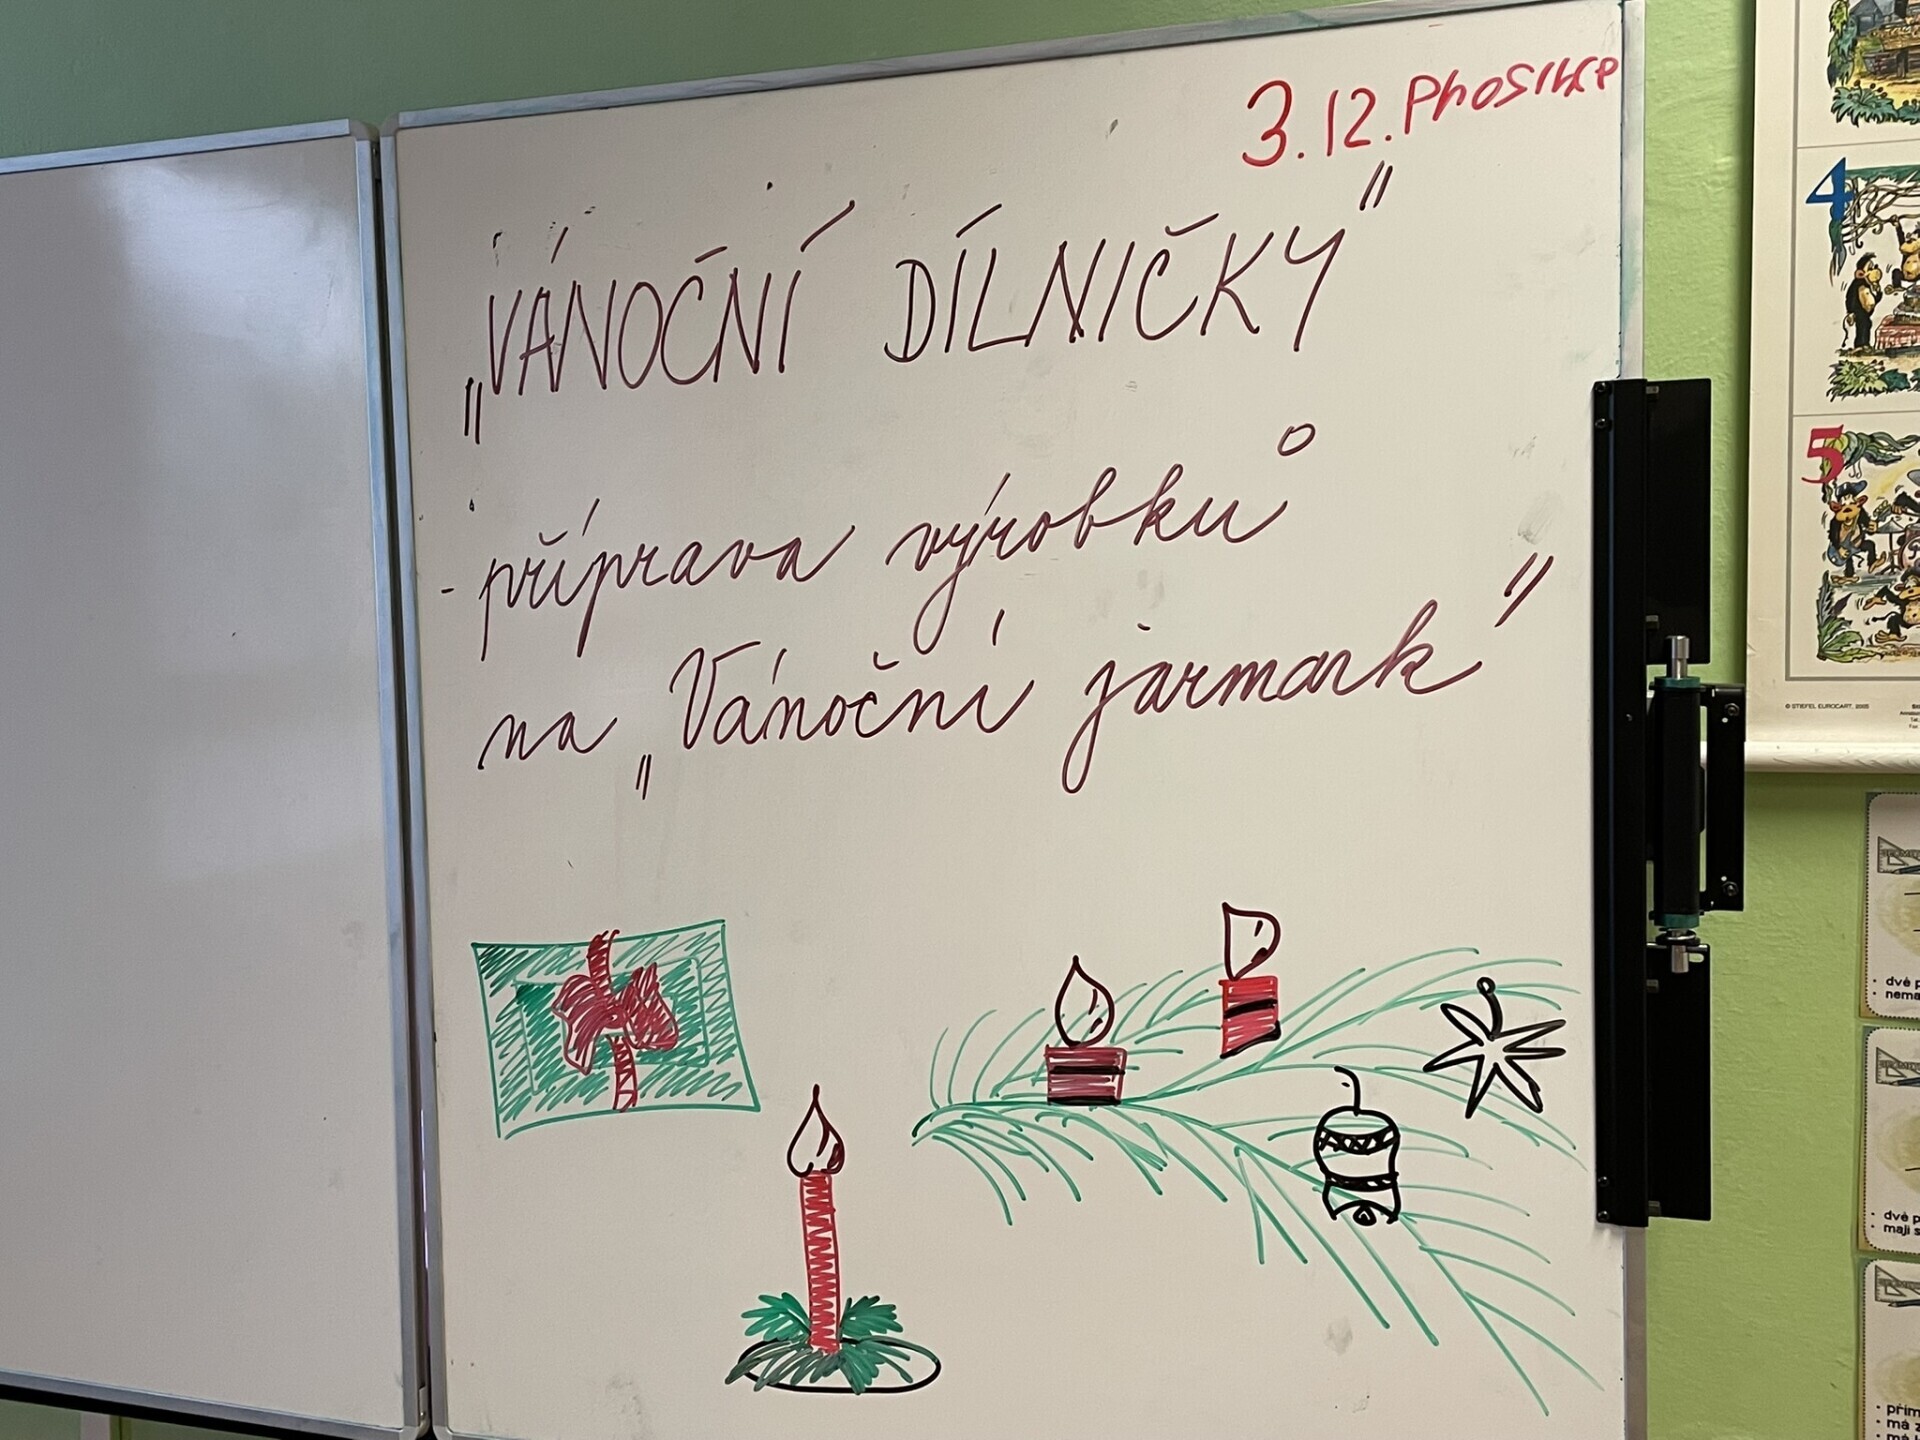 3.12. Phosince
„VÁNOČNÍ DÍLNIČKY"
- příprava výrobků
na „Vánoční jarmark"
4
5
© STIEFEL EUROCART, 2005
• dvě p
• nema
• dvě p
• mají s
• přím
• má z